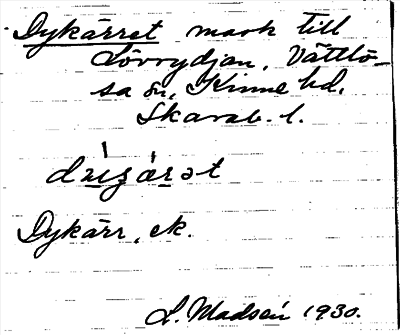 Dykärret mark till
Sörrydjan, Vättlö-
sa sn, Kinne hd.
Skarab. l.
Dykärr, ek.
L. Madsén 1930.